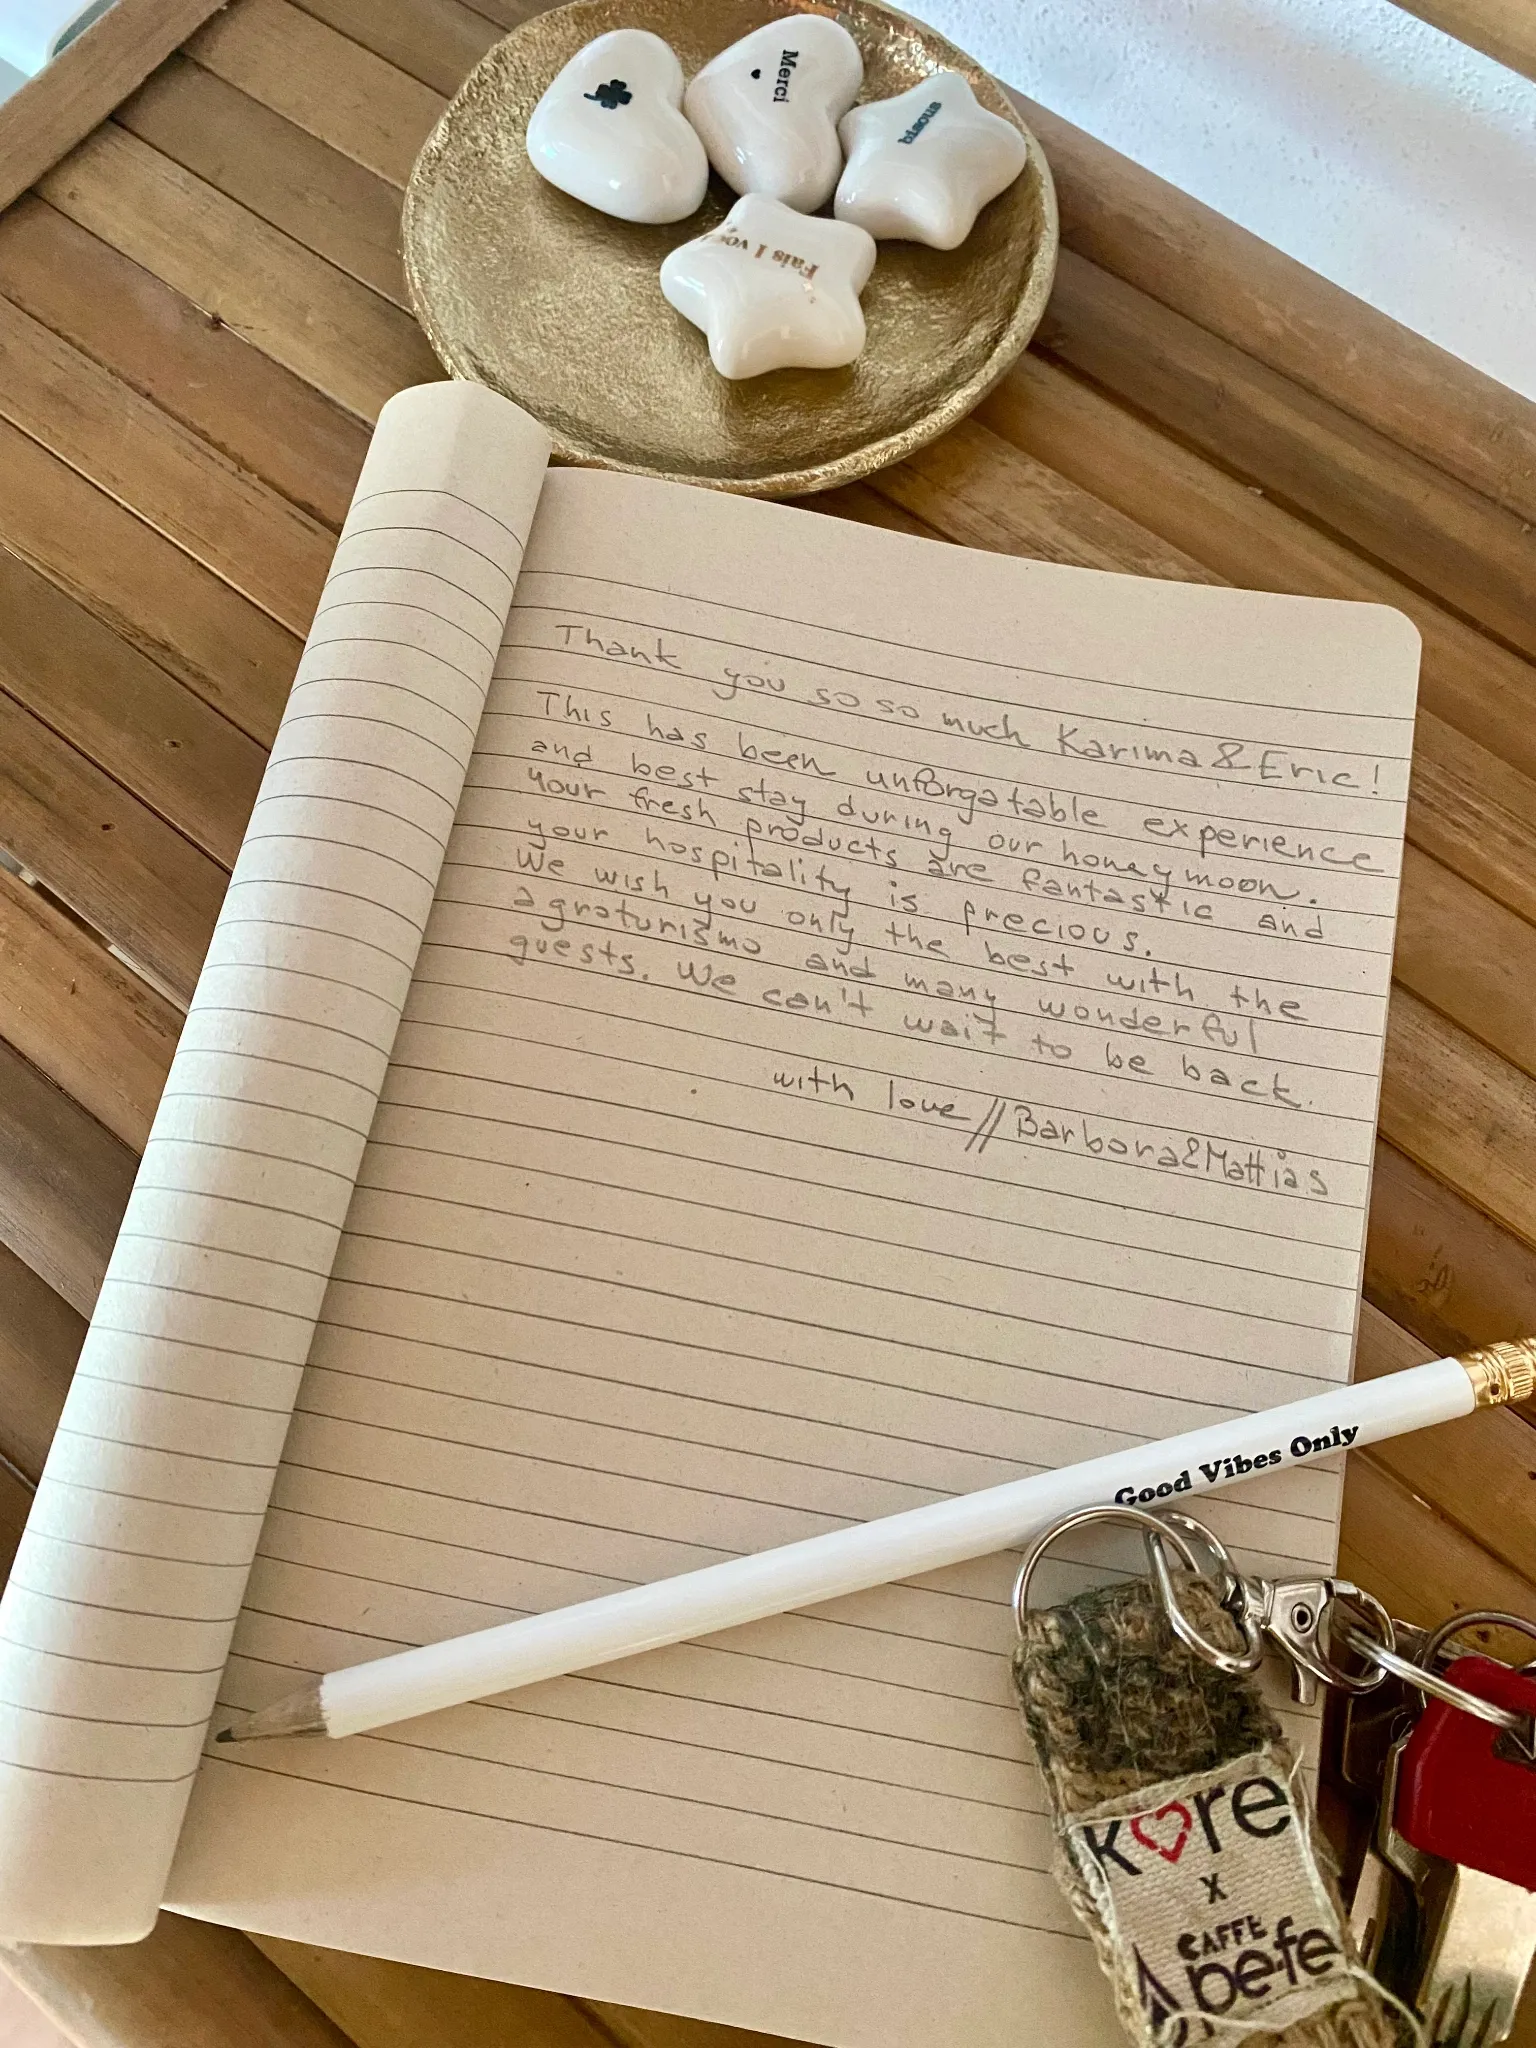 Merci
bisous
Fais 1 voe
Thank you so so much Karima & Eric!
This has been unforgatable experience
and best stay during our honeymoon.
Your fresh products are fantastic and
your hospitality is precious.
We wish you only the best with the
agroturismo and many wonderful
guests. We can't wait to be back.
with love // Barbora & Mattias
Good Vibes Only
kore
x
CAFFE
pefe